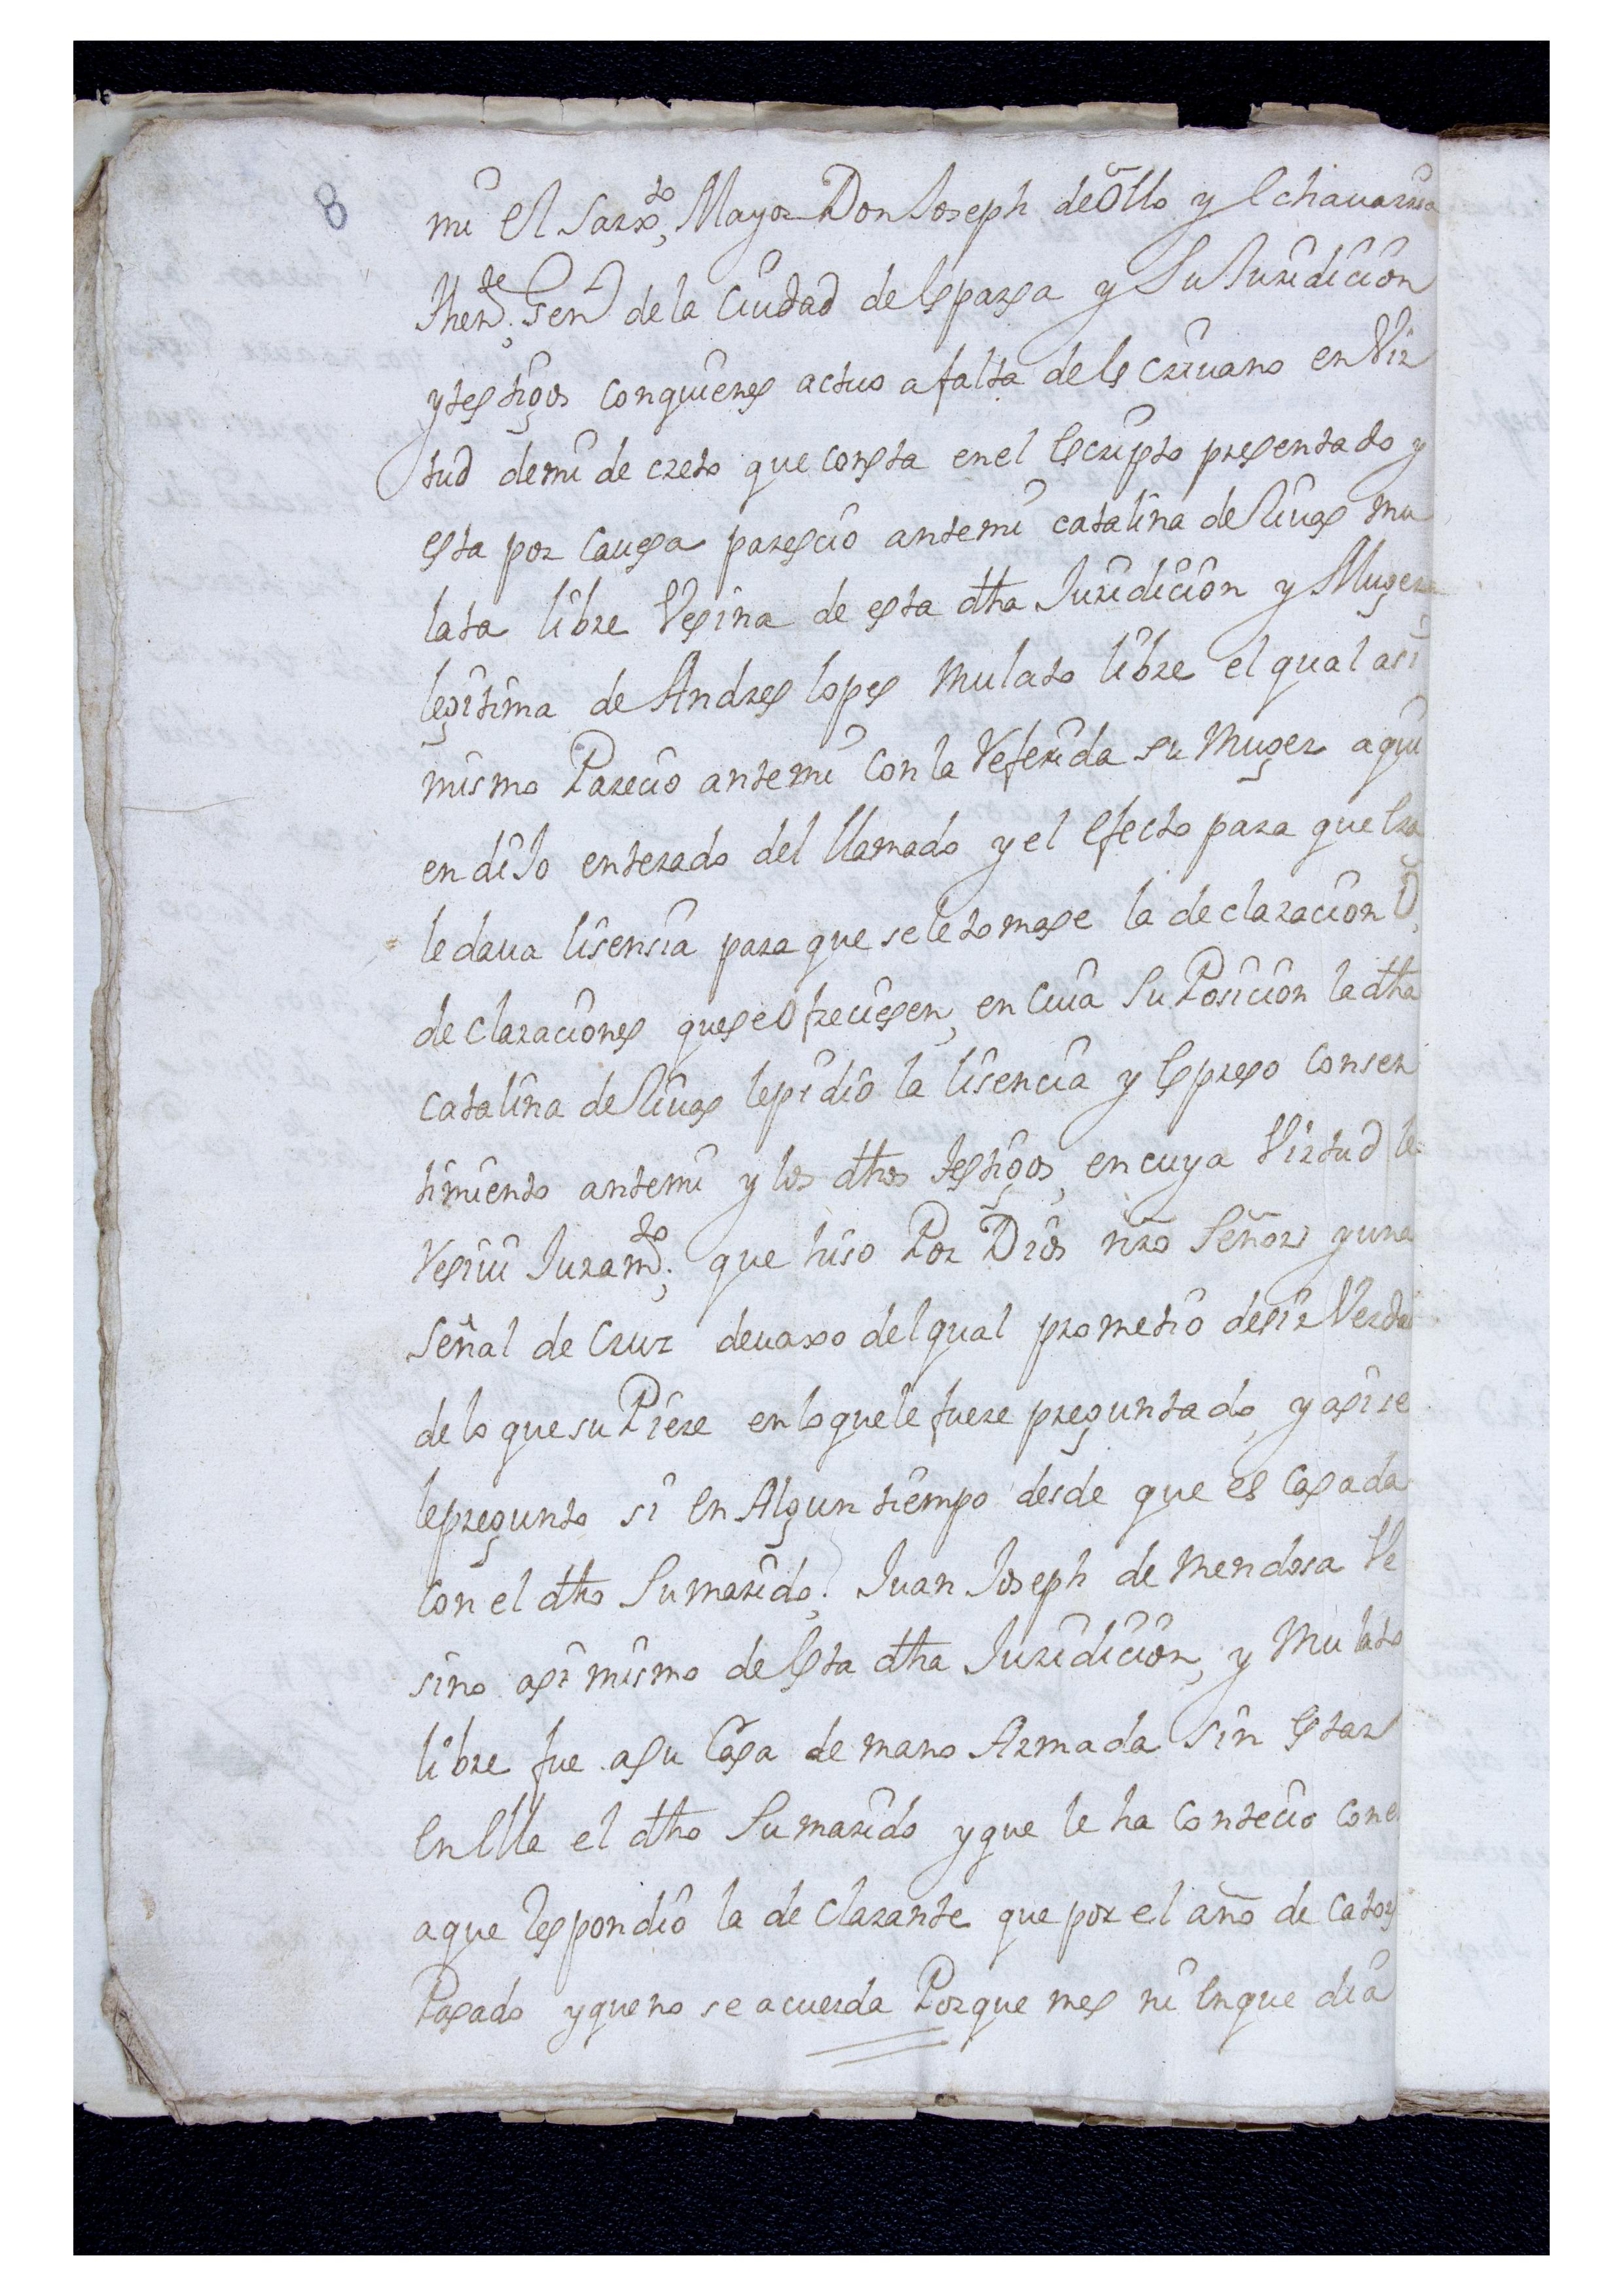 8
mi el Sarxto, Mayor Don Joseph de Ollo y Echauarria
Thente. Genl de la Ciudad de Esparsa y Su Juridicion
y testigos con quienes actuo a falta de Escriuano en Vir
tud de mi decreto que consta en el Escripto presentado y
esta por Cauesa parescio ante mi catalina de Riuas mu
lata libre Vesina de esta dha Juridicion y Muger
legitima de Andres lopes Mulato libre el qual asi
mismo Parecio ante mi Con la Referida su Muger aqui
en diJo enterado del llamado y el Efecto para que Era
le daua lisensia para que se le tomase la declaracion O
declaraciones que se Ofreciesen, en Cuia SuPosicion la dha
Catalina de Riuas le pidio la lisencia y Espreso Consen
timiento ante mi y los dhos testigos, en cuya Virtud le
Resiui Juramto. que hiso Por Dios nro Señor y una
Señal de Cruz devaxo del qual prometio desir Verda
de lo que suPiere en lo que le fuere preguntado, y asi se
le pregunto si En Algun tiempo desde que es Casada
Con el dho Su marido, Juan Joseph de Mendosa Ve
sino asi mismo de Esta dha Juridicion, y Mulato
libre fue a su Casa de mano Armada Sin Estar
En Ella el dho Su marido y que le ha Contecio con el
a que Respondio la de Clarante que por el año de Catos
Pasado y que no se acuerda Por que mes ni En que dia